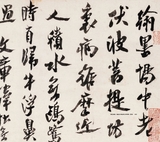 翰墨場中老
伏波菩提坊
裏病維摩近
人積水無鷗鷺
時有歸牛浮鼻
過 文章韓杜